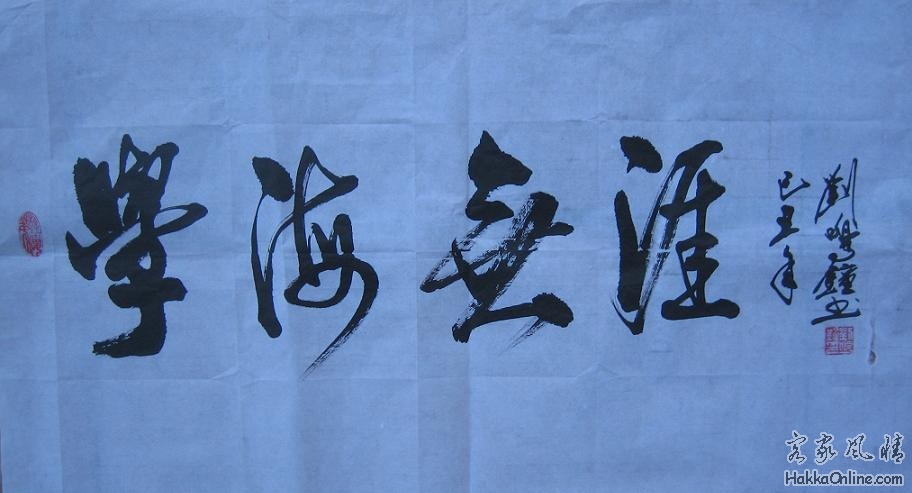 學海無涯
己丑年
劉鳴鐘书
客家风情
HakkaOnline.com